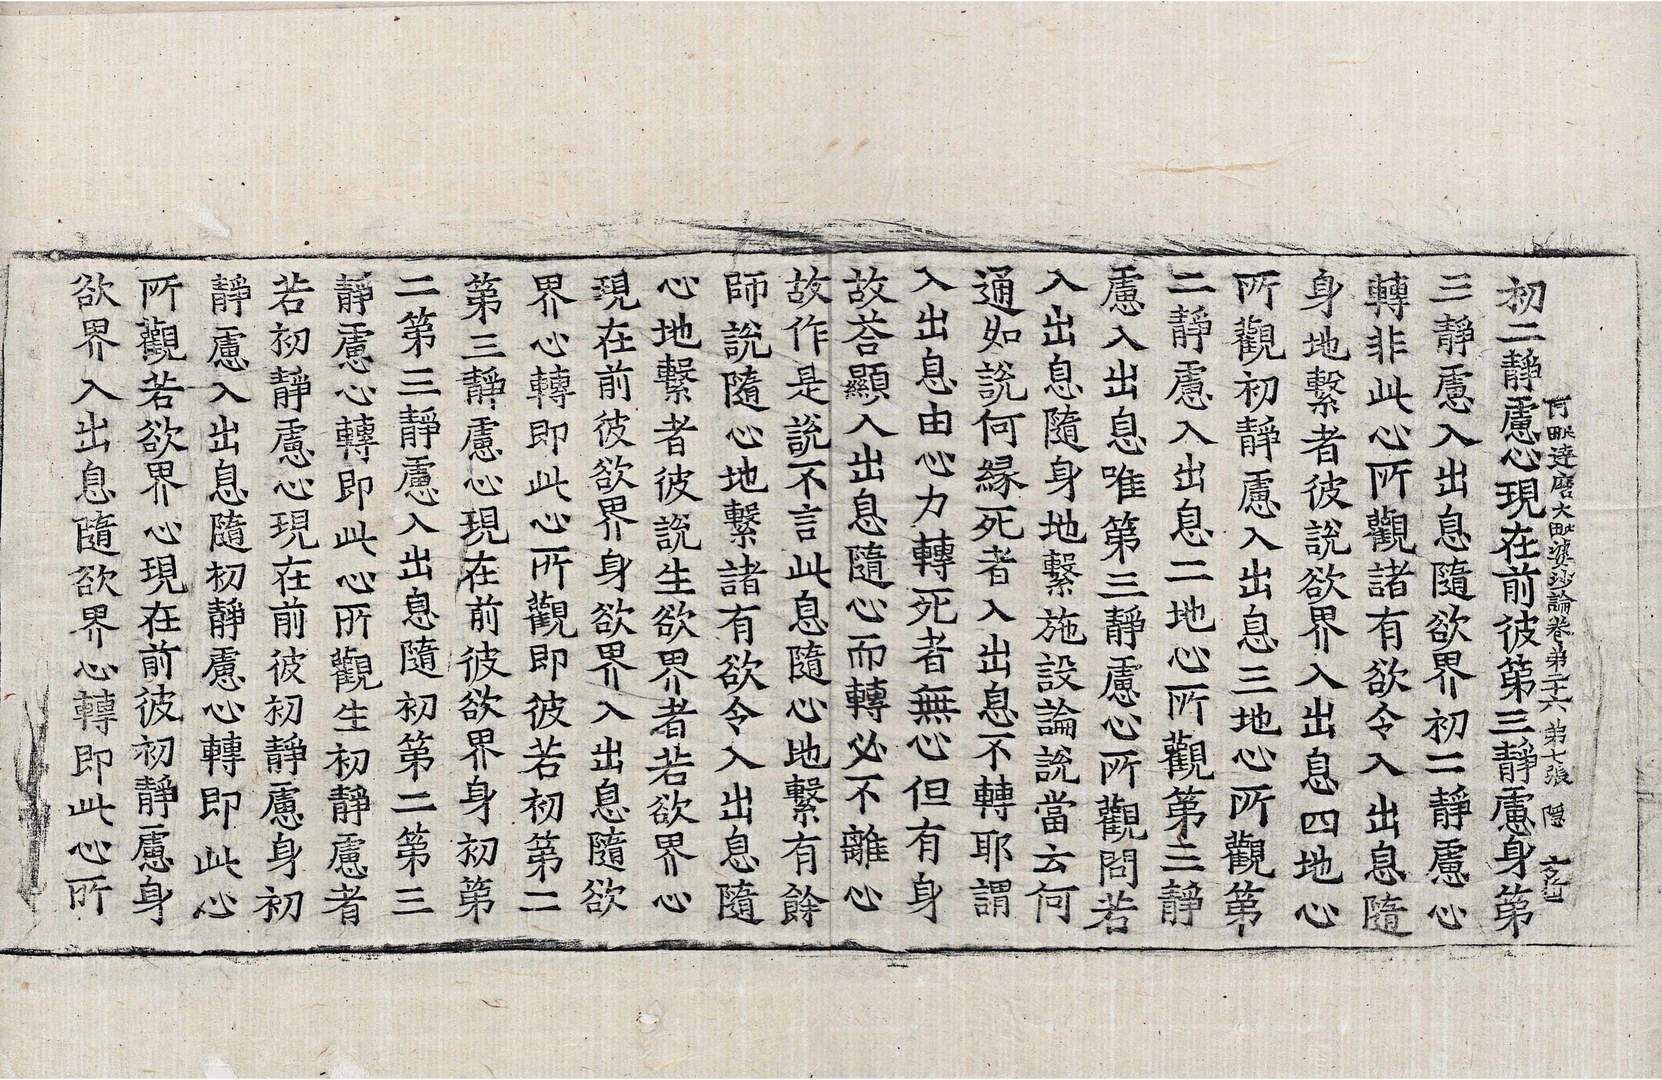 阿毗達磨大毗婆沙論卷第二十六 第七張 隱
初二靜慮心現在前彼第三靜慮身第
三靜慮入出息隨欲界初二靜慮心
轉非此心所觀諸有欲令入出息隨
身地繫者彼說欲界入出息四地心
所觀初靜慮入出息三地心所觀第
二靜慮入出息二地心所觀第三靜
慮入出息唯第三靜慮心所觀問若
入出息隨身地繫施設論說當云何
通如說何緣死者入出息不轉耶謂
入出息由心力轉死者無心但有身
故荅顯入出息隨心而轉必不離心
故作是說不言此息隨心地繫有餘
師說隨心地繫諸有欲令入出息隨
心地繫者彼說生欲界者若欲界心
現在前彼欲界身欲界入出息隨欲
界心轉即此心所觀即彼若初第二
第三靜慮心現在前彼欲界身初第
二第三靜慮入出息隨初第二第三
靜慮心轉即此心所觀生初靜慮者
若初靜慮心現在前彼初靜慮身初
靜慮入出息隨初靜慮心轉即此心
所觀若欲界心現在前彼初靜慮身
欲界入出息隨欲界心轉即此心所